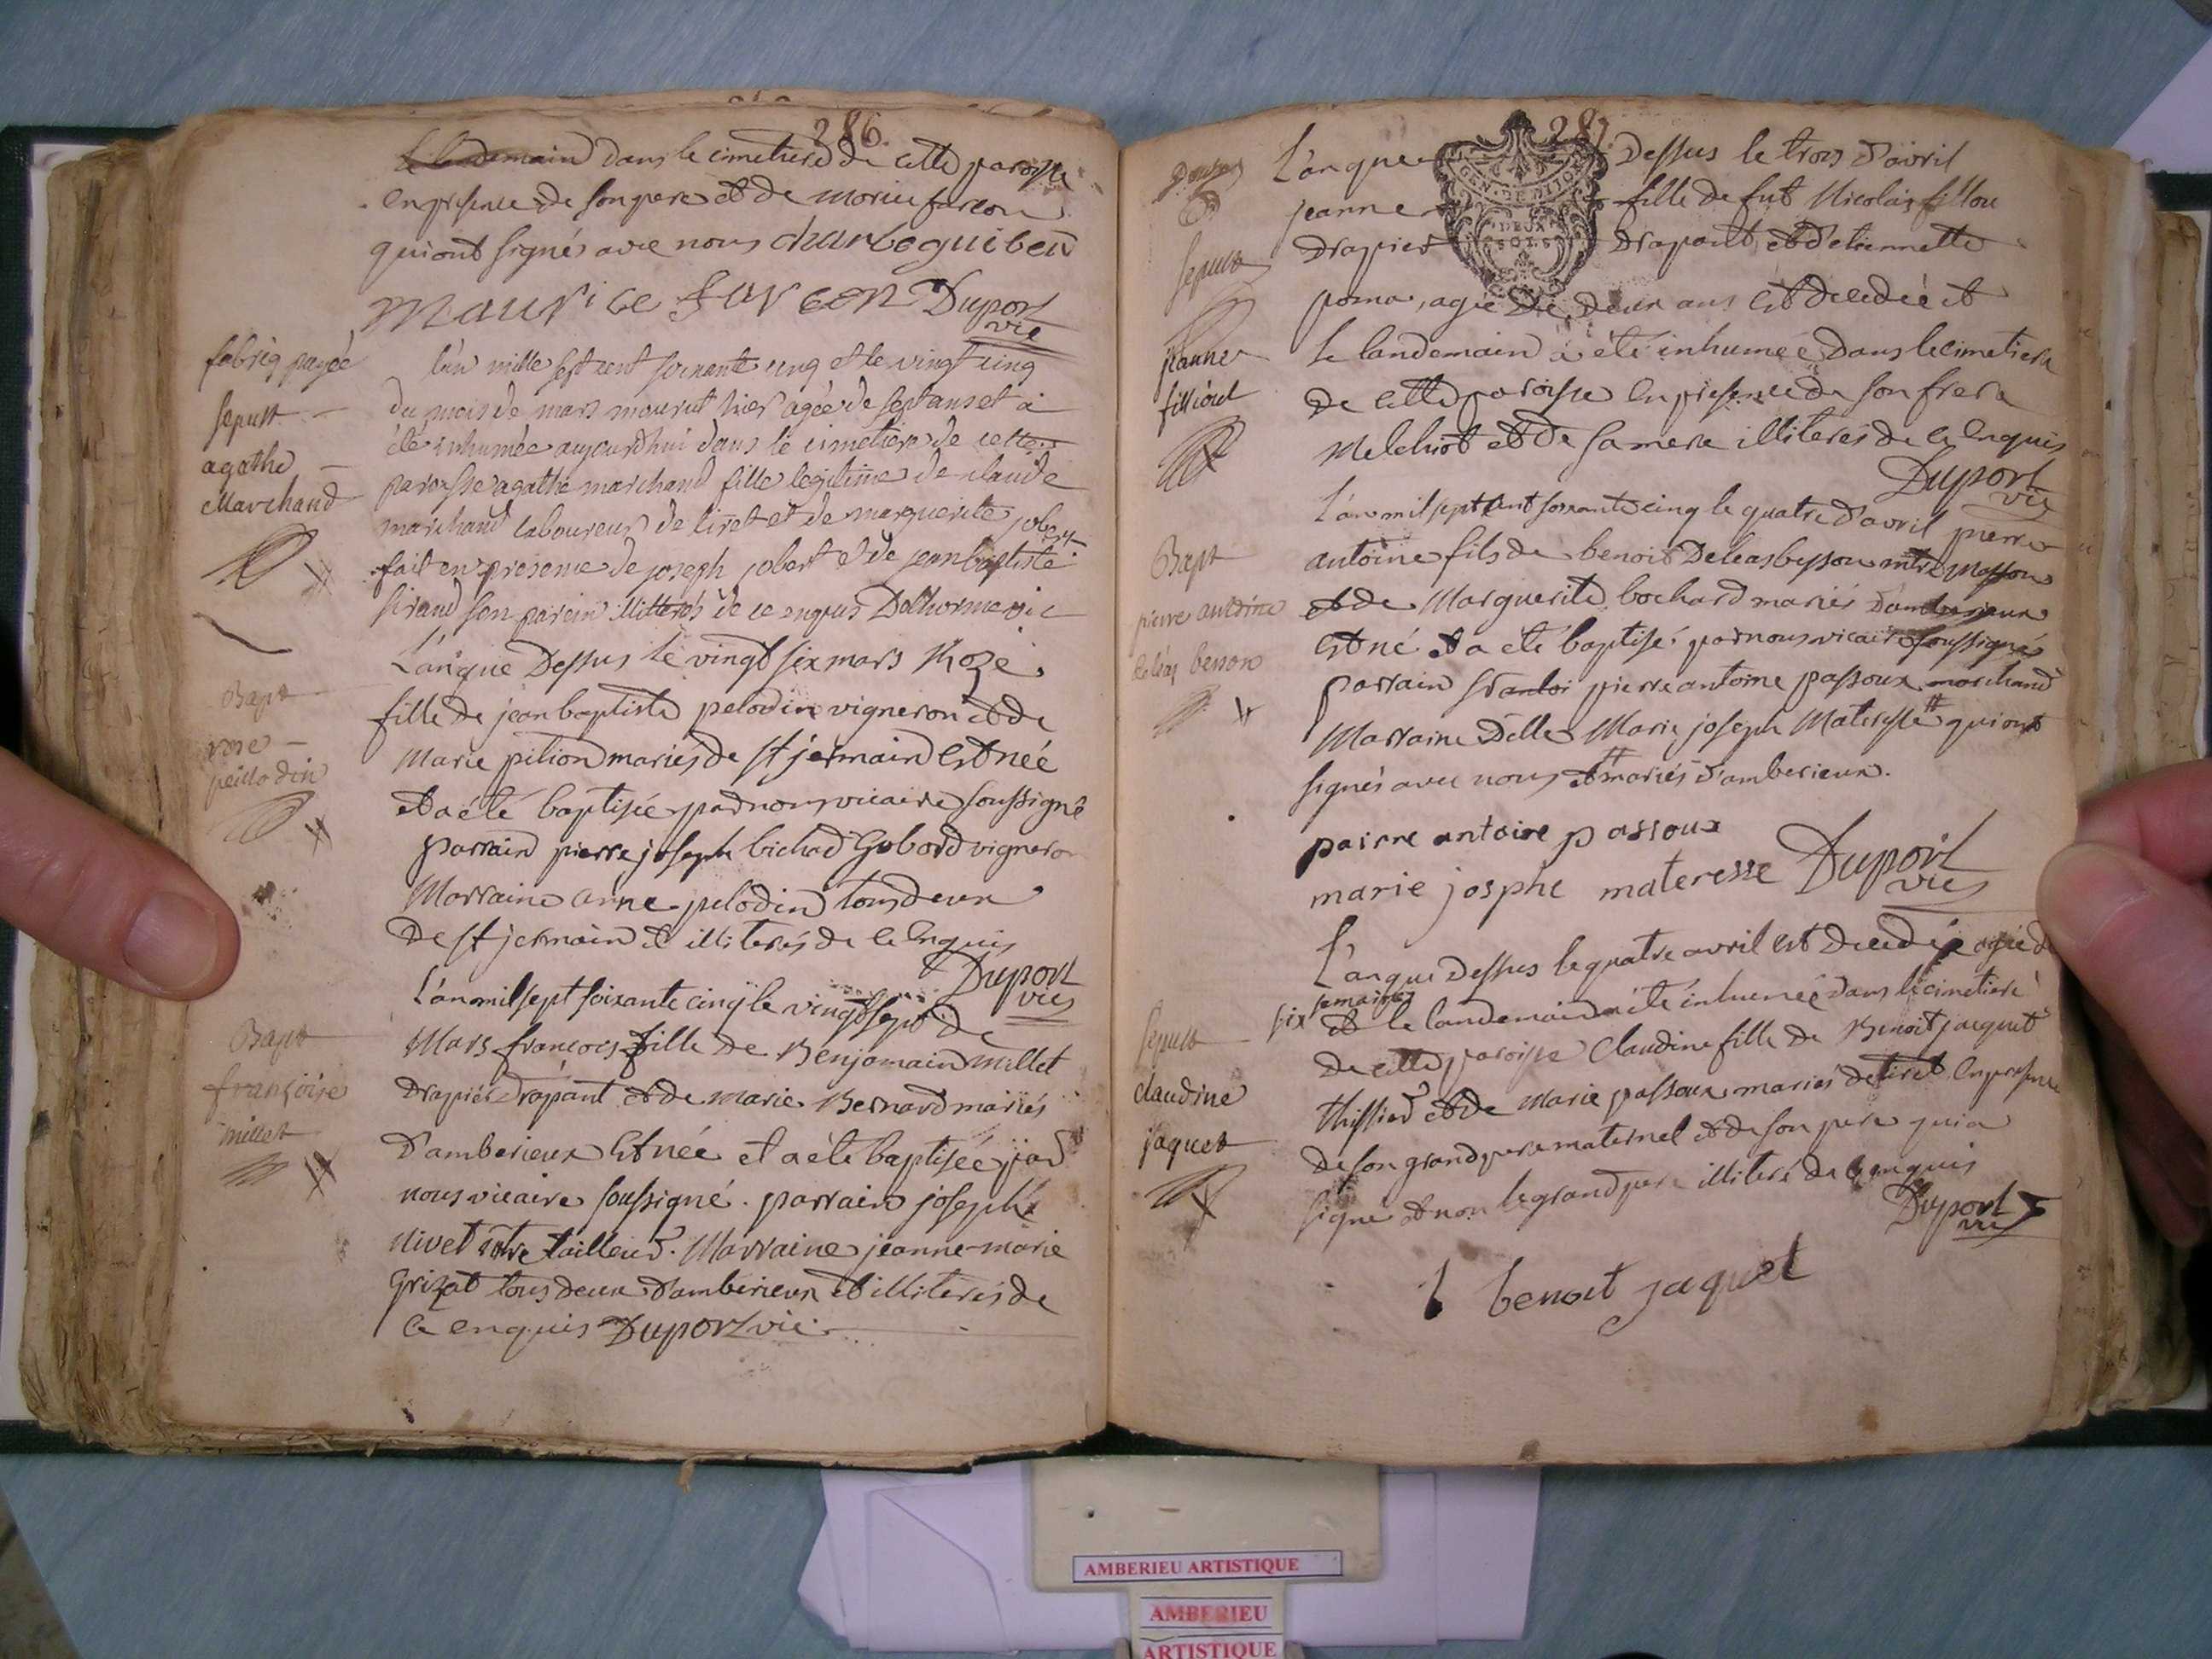 286.
Le landemain dans le cimetiere de cette paroisse
en presence de son pere et de morice furcon
qui ont signés avec nous charle guibeu
Maurice furcon Duport
vic
fabriq payée
sepult
agathe
Marchand
l'an mille sept cent soixante cinq et le vingt cinq
du mois de mars mourut hier agée de sept ans et a
été inhumée aujourdhui dans le cimetiere de cette
paroisse agathe marchand fille legitime de claude
marchand laboureur de tiret et de marguerite jobert
fait en presence de joseph jobert et de jean baptiste
sirand son parein illitterés de ce enquis
Bapt
rose
peillodin
L'an que Dessus le vingt six mars Roze
fille de jean baptiste pelodin vigneron et de
Marie pition mariés de st jermain est née
et a été baptisée par nous vicaire soussigné
parrain pierre joseph bichad Gobord vigneron
Marraine anne pelodin tous deux
De st jermain et illiterés de ce enquis
Duport
vic
Bapt
françoise
millet
L'an mil sept soixante cinq le vingt sept de
Mars francoise fille de Benjamain millet
Drapier Drapant et de Marie Bernard mariés
D'amberieux est née et a été baptisée par
nous vicaire soussigné. parrain joseph
Nivet mtre tailleur. Marraine jeanne-marie
Grizat tous deux d'amberieux et illiterés de
ce enquis Duport vic
287.
GEN. DE DIION
DEUX
SOLS
sepult
jeanne
filliout
L'an que Dessus le trois d'avril
jeanne fille de fut Nicolas filliou
Drapier Drapant et d'etiennette
poma, agée De Deux ans est decedée et
le landemain a été inhumée Dans le cimetiere
de cette paroisse en presence de son frere
Melchiot et de sa mere illiterés de ce enquis
Duport
vic
Bapt
pierre antoine
deleas besson
L'an mil sept cent soixante cinq le quatre d'avril pierre
antoine fils de benoit Deleas besson mtre masson
et de Marguerite bochard mariés d'amberieux
est né et a été baptisé par nous vicaire soussigné
parrain pierre antoine passoux marchand
Marraine Delle Marie joseph Materesse # qui ont
signés avec nous # et mariés d'amberieux.
pairre antoire passoux
marie josphe materesse Duport
vic
sepult
claudine
jaquet
L'an que Dessus le quatre avril est decedée agée de
six semaines et le landemain a été inhumée dans le cimetiere
De cette paroisse Claudine fille de Benoit jacquet
thissier et de Marie passoux mariés de tiret en presence
de son grand pere maternel et de son pere qui a
signé et non le grand pere illiteré de ce enquis
Duport
vic
benoit jaquet
AMBERIEU ARTISTIQUE
AMBERIEU
ARTISTIQUE